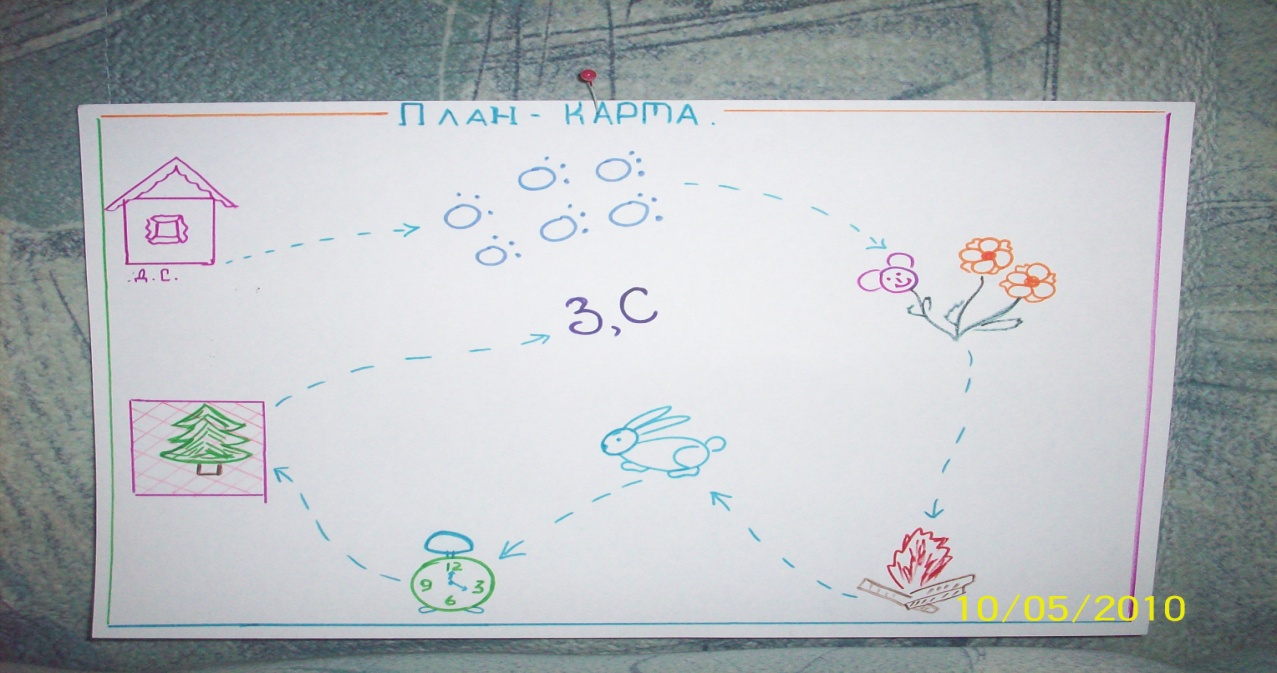 ПЛАН - КАРТА.
Д.С.
З,С
12
9 3
6
10/05/2010